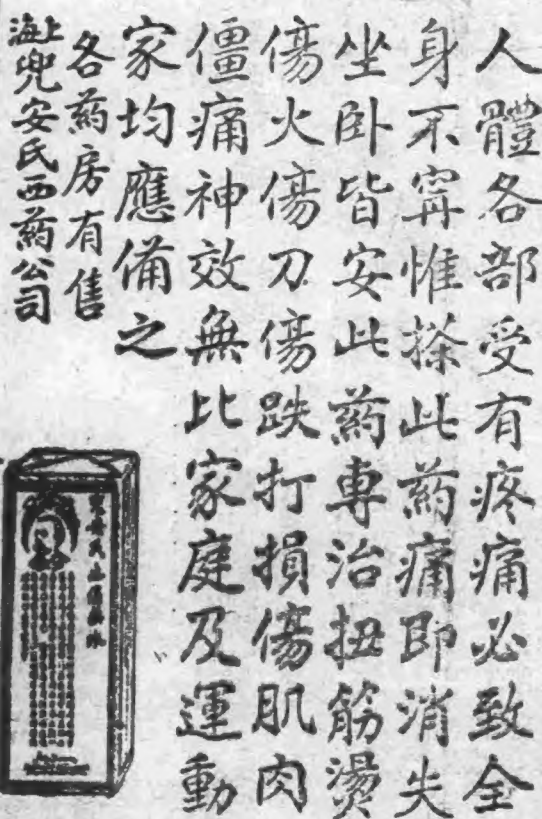 人體各部受有疼痛必致全
身不寧惟搽此葯痛即消失
坐卧皆安此葯專治扭筋燙
傷火傷刀傷跌打損傷肌肉
僵痛神效無比家庭及運動
家均應備之
各葯房有售
上海兜安氏西葯公司